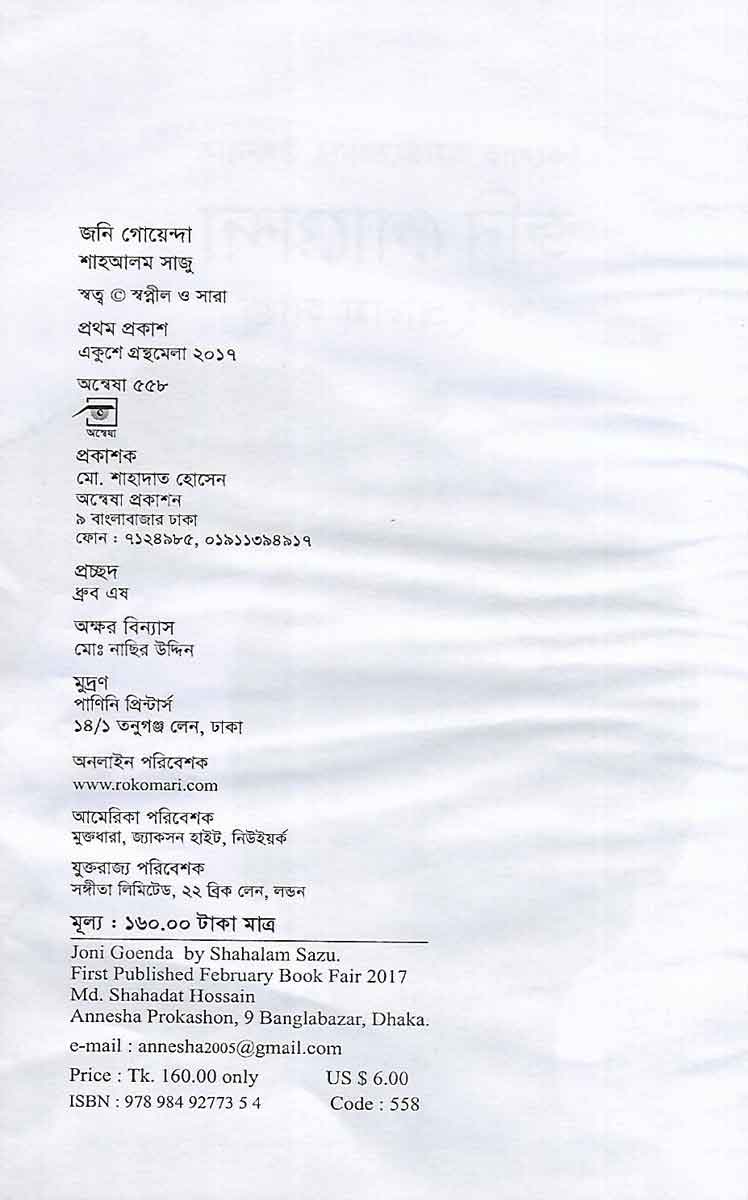 জনি গোয়েন্দা
শাহআলম সাজু
স্বত্ব © স্বপ্নীল ও সারা
প্রথম প্রকাশ
একুশে গ্রন্থমেলা ২০১৭
অন্বেষা ৫৫৮
অন্বেষা
প্রকাশক
মো. শাহাদাত হোসেন
অন্বেষা প্রকাশন
৯ বাংলাবাজার ঢাকা
ফোন : ৭১২৪৯৮৫, ০১৯১১৩৯৪৯১৭
প্রচ্ছদ
ধ্রুব এষ
অক্ষর বিন্যাস
মোঃ নাছির উদ্দিন
মুদ্রণ
পাণিনি প্রিন্টার্স
১৪/১ তনুগঞ্জ লেন, ঢাকা
অনলাইন পরিবেশক
www.rokomari.com
আমেরিকা পরিবেশক
মুক্তধারা, জ্যাকসন হাইট, নিউইয়র্ক
যুক্তরাজ্য পরিবেশক
সঙ্গীতা লিমিটেড, ২২ ব্রিক লেন, লন্ডন
মূল্য : ১৬০.০০ টাকা মাত্র
Joni Goenda by Shahalam Sazu.
First Published February Book Fair 2017
Md. Shahadat Hossain
Annesha Prokashon, 9 Banglabazar, Dhaka.
e-mail : annesha2005@gmail.com
Price : Tk. 160.00 only US $ 6.00
ISBN : 978 984 92773 5 4 Code : 558